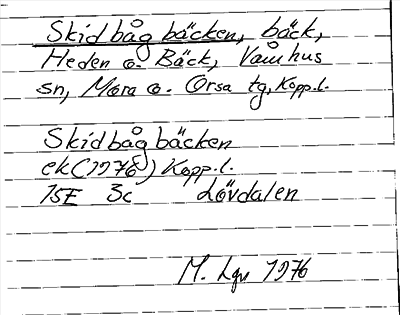 Skidbågbäcken, bäck,
Heden o. Bäck, Våmhus
sn, Mora o. Orsa tg, Kopp.l.
Skidbågbäcken
ek (1976) Kopp.l.
15E 3c Lövdalen
M. Lgn 1976